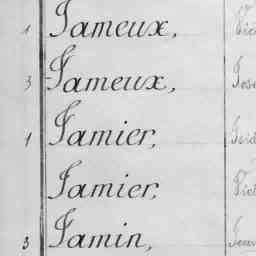 1 Jameux,
3 Jameux,
1 Jamier,
Jamier,
3 Jamin,